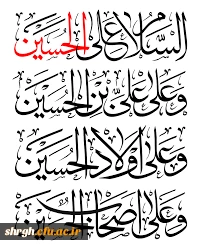 السلام علی الحسین
وعلی علی بن الحسین
وعلی اولاد الحسین
وعلی اصحاب الحسین
shrgh.cfu.ac.ir